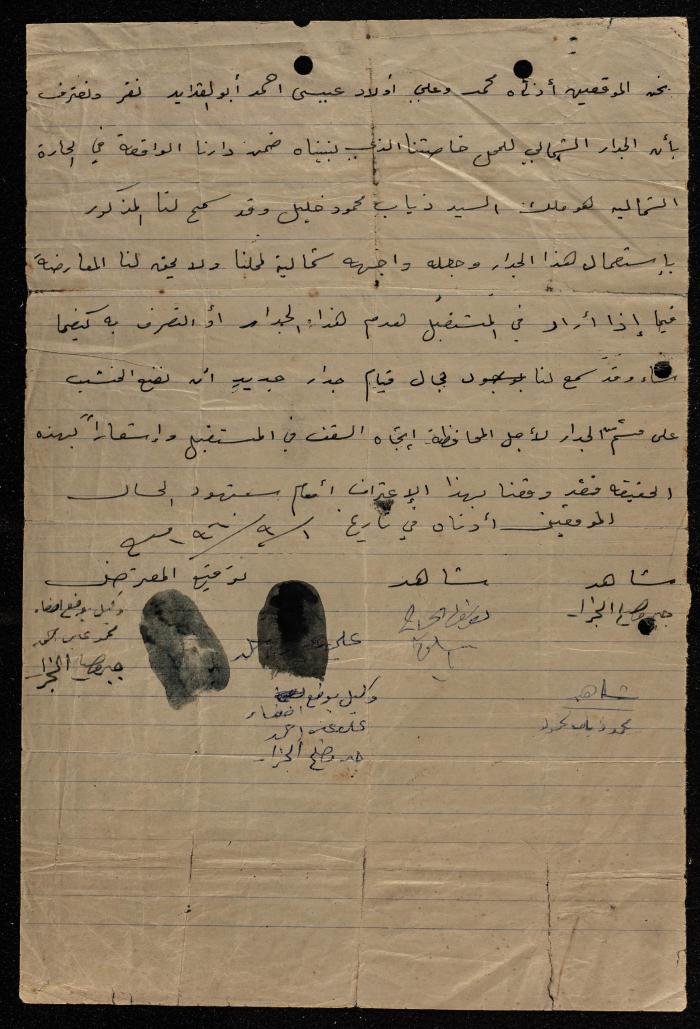 نحن الموقعين أدناه محمد وعلي أولاد عيسى احمد أبو الفدايد نقر ونعترف
بأن الجدار الشمالي للمحل خاصتنا الذي بنيناه ضمن دارنا الواقعة في الحارة
الشماليه هو ملك السيد ذياب محمود خليل وقد سمح لنا المذكور
بإستعمال هذا الجدار وجعله واجهه شمالية لمحلنا ولا يحق لنا المعارضة
فيما إذا أراد في المستقبل هدم هذا الجدار أو التصرف به كيفما
شاء وقد سمح لنا مجال قيام جدار جديد ان نضع الخشب
على الجدار لأجل المحافظة إتجاه السقف في المستقبل وإشعاراً بهذه
الحقيقه فقد وقعنا بهذا الإعتراف أمام شهود الحال
الموقعين أدناه في تاريخ
شاهد شاهد توقيع
الجزار
وكيل بوضع امضاء
محمد
الجزار
علي
وكيل بوضع امضاء
علي احمد
الجزار
شاهد
محمود ذياب محمود